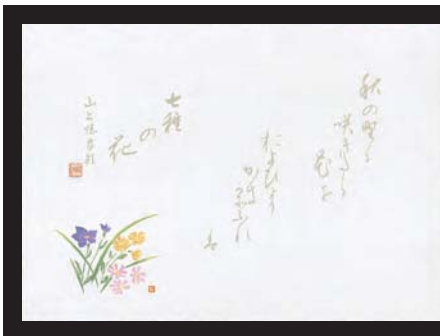 秋の野に
咲きたる
花を
およひをり
かき数ふれ
は
七種
の
花
山上憶良